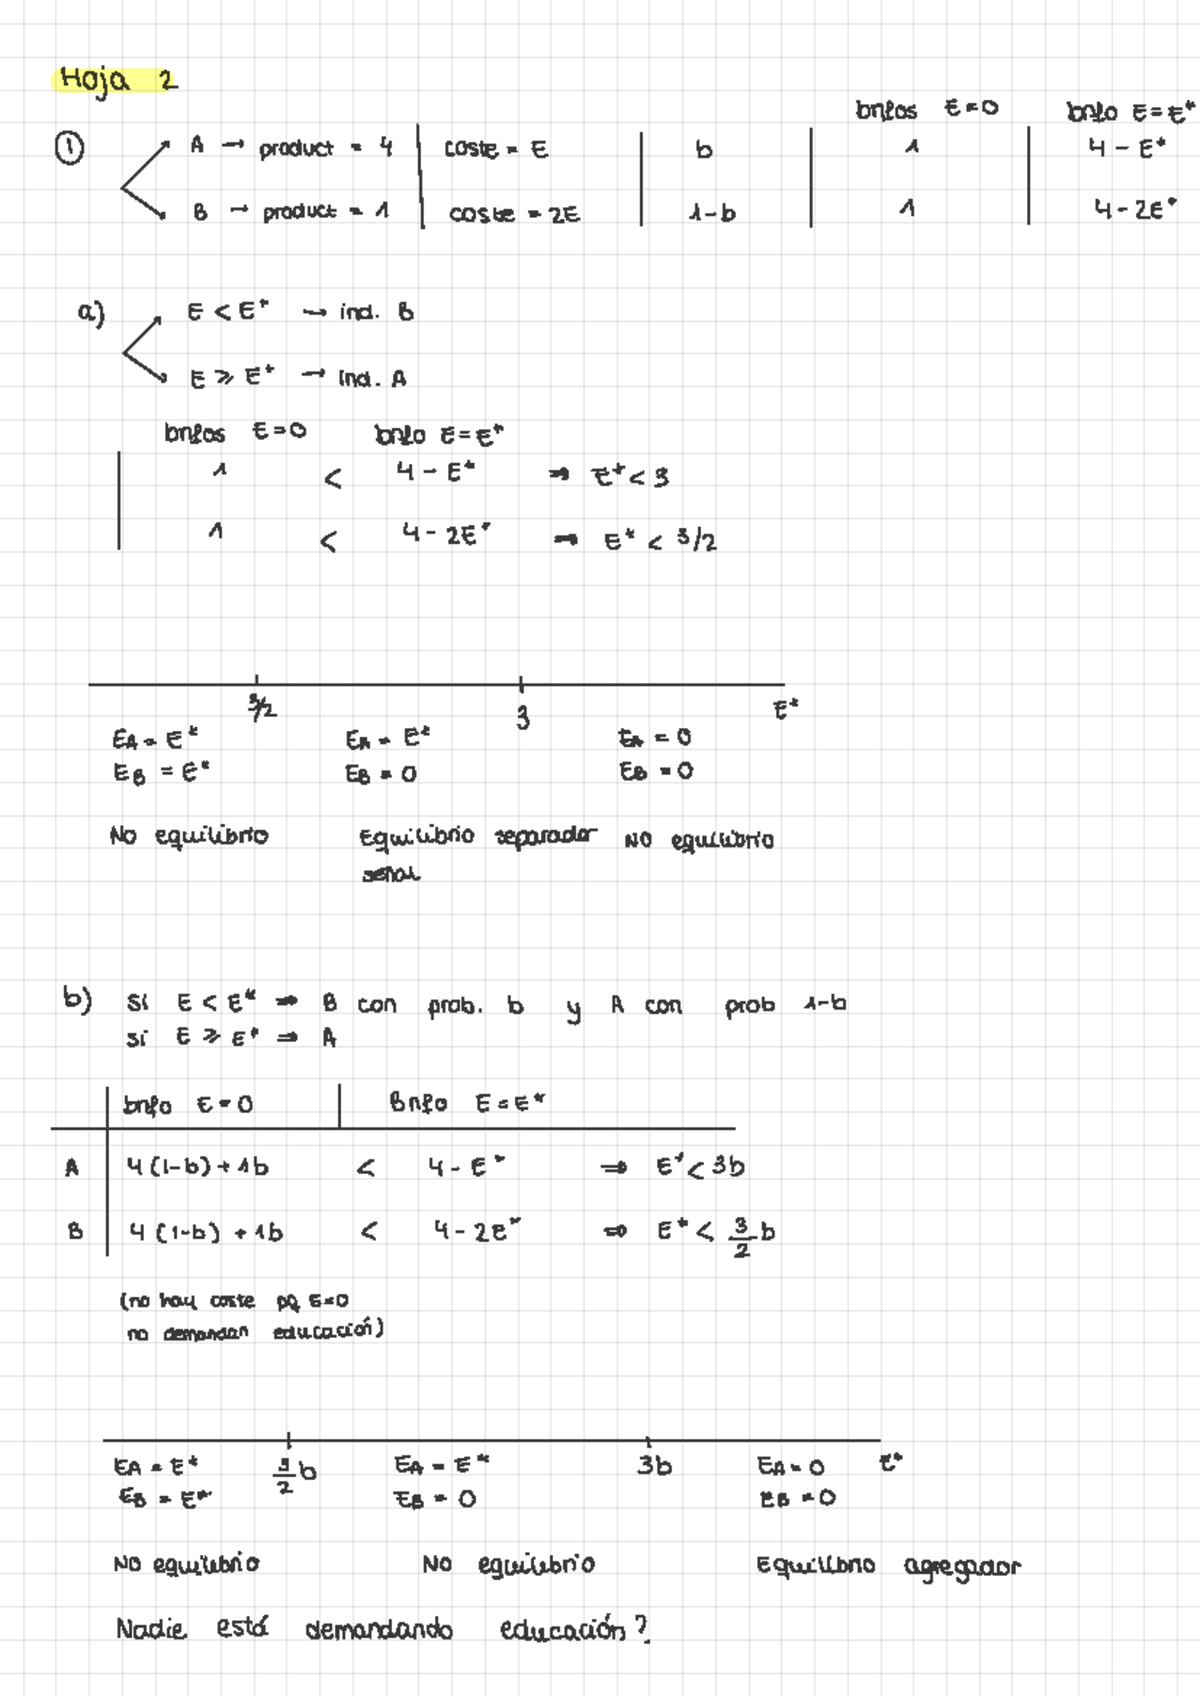 Hoja 2
bnfos E=0 bnfo E=E*
① A → product = 4 coste = E b 1 4 - E*
B → product = 1 coste = 2E 1-b 1 4-2E*
a) E < E* → ind. B
E ≥ E* → Ind. A
bnfos E=0 bnfo E=E*
1 < 4 - E* ⇒ E* < 3
1 < 4 - 2E* ⇒ E* < 3/2
3/2 3 E*
EA = E* EA = E* EA = 0
EB = E* EB = 0 EB = 0
No equilibrio Equilibrio separador NO equilibrio
señal
b) Si E < E* ⇒ B con prob. b y A con prob 1-b
Si E ≥ E* ⇒ A
bnfo E=0 Bnfo E=E*
A 4(1-b)+1b < 4-E* ⇒ E* < 3b
B 4(1-b)+1b < 4-2E* ⇒ E* < 3/2 b
(no hay coste pq E=0
no demandan educación)
EA = E* 3/2 b EA = E* 3b EA = 0 E*
EB = E* EB = 0 EB = 0
NO equilibrio NO equilibrio Equilibrio agregador
Nadie está demandando educación?